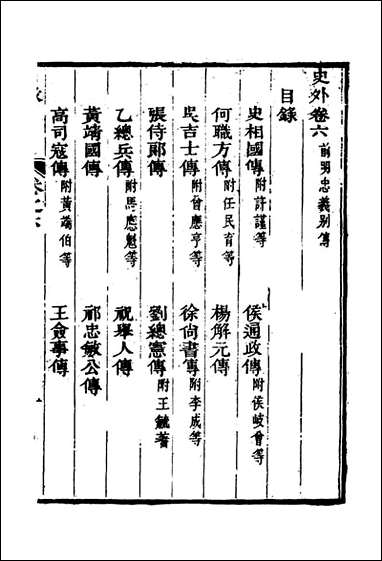 史外卷六 前明忠義別傳
目錄
史相國傳 附許謹等 侯通政傳 附侯岐曾等
何職方傳 附任民育等 楊解元傳
吳吉士傳 附曾應亨等 徐尚書傳 附李成等
張侍郎傳 劉總憲傳 附王毓蓍
乙總兵傳 附馬應魁等 祝舉人傳
黃靖國傳 祁忠敏公傳
高司寇傳 附黃端伯等 王僉事傳